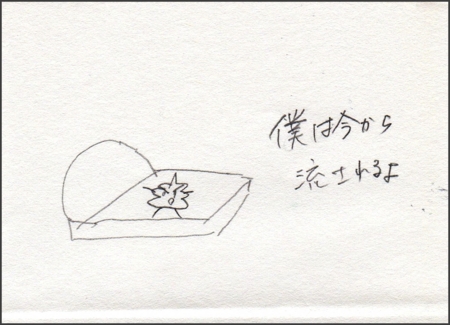 僕は今から
流されるよ